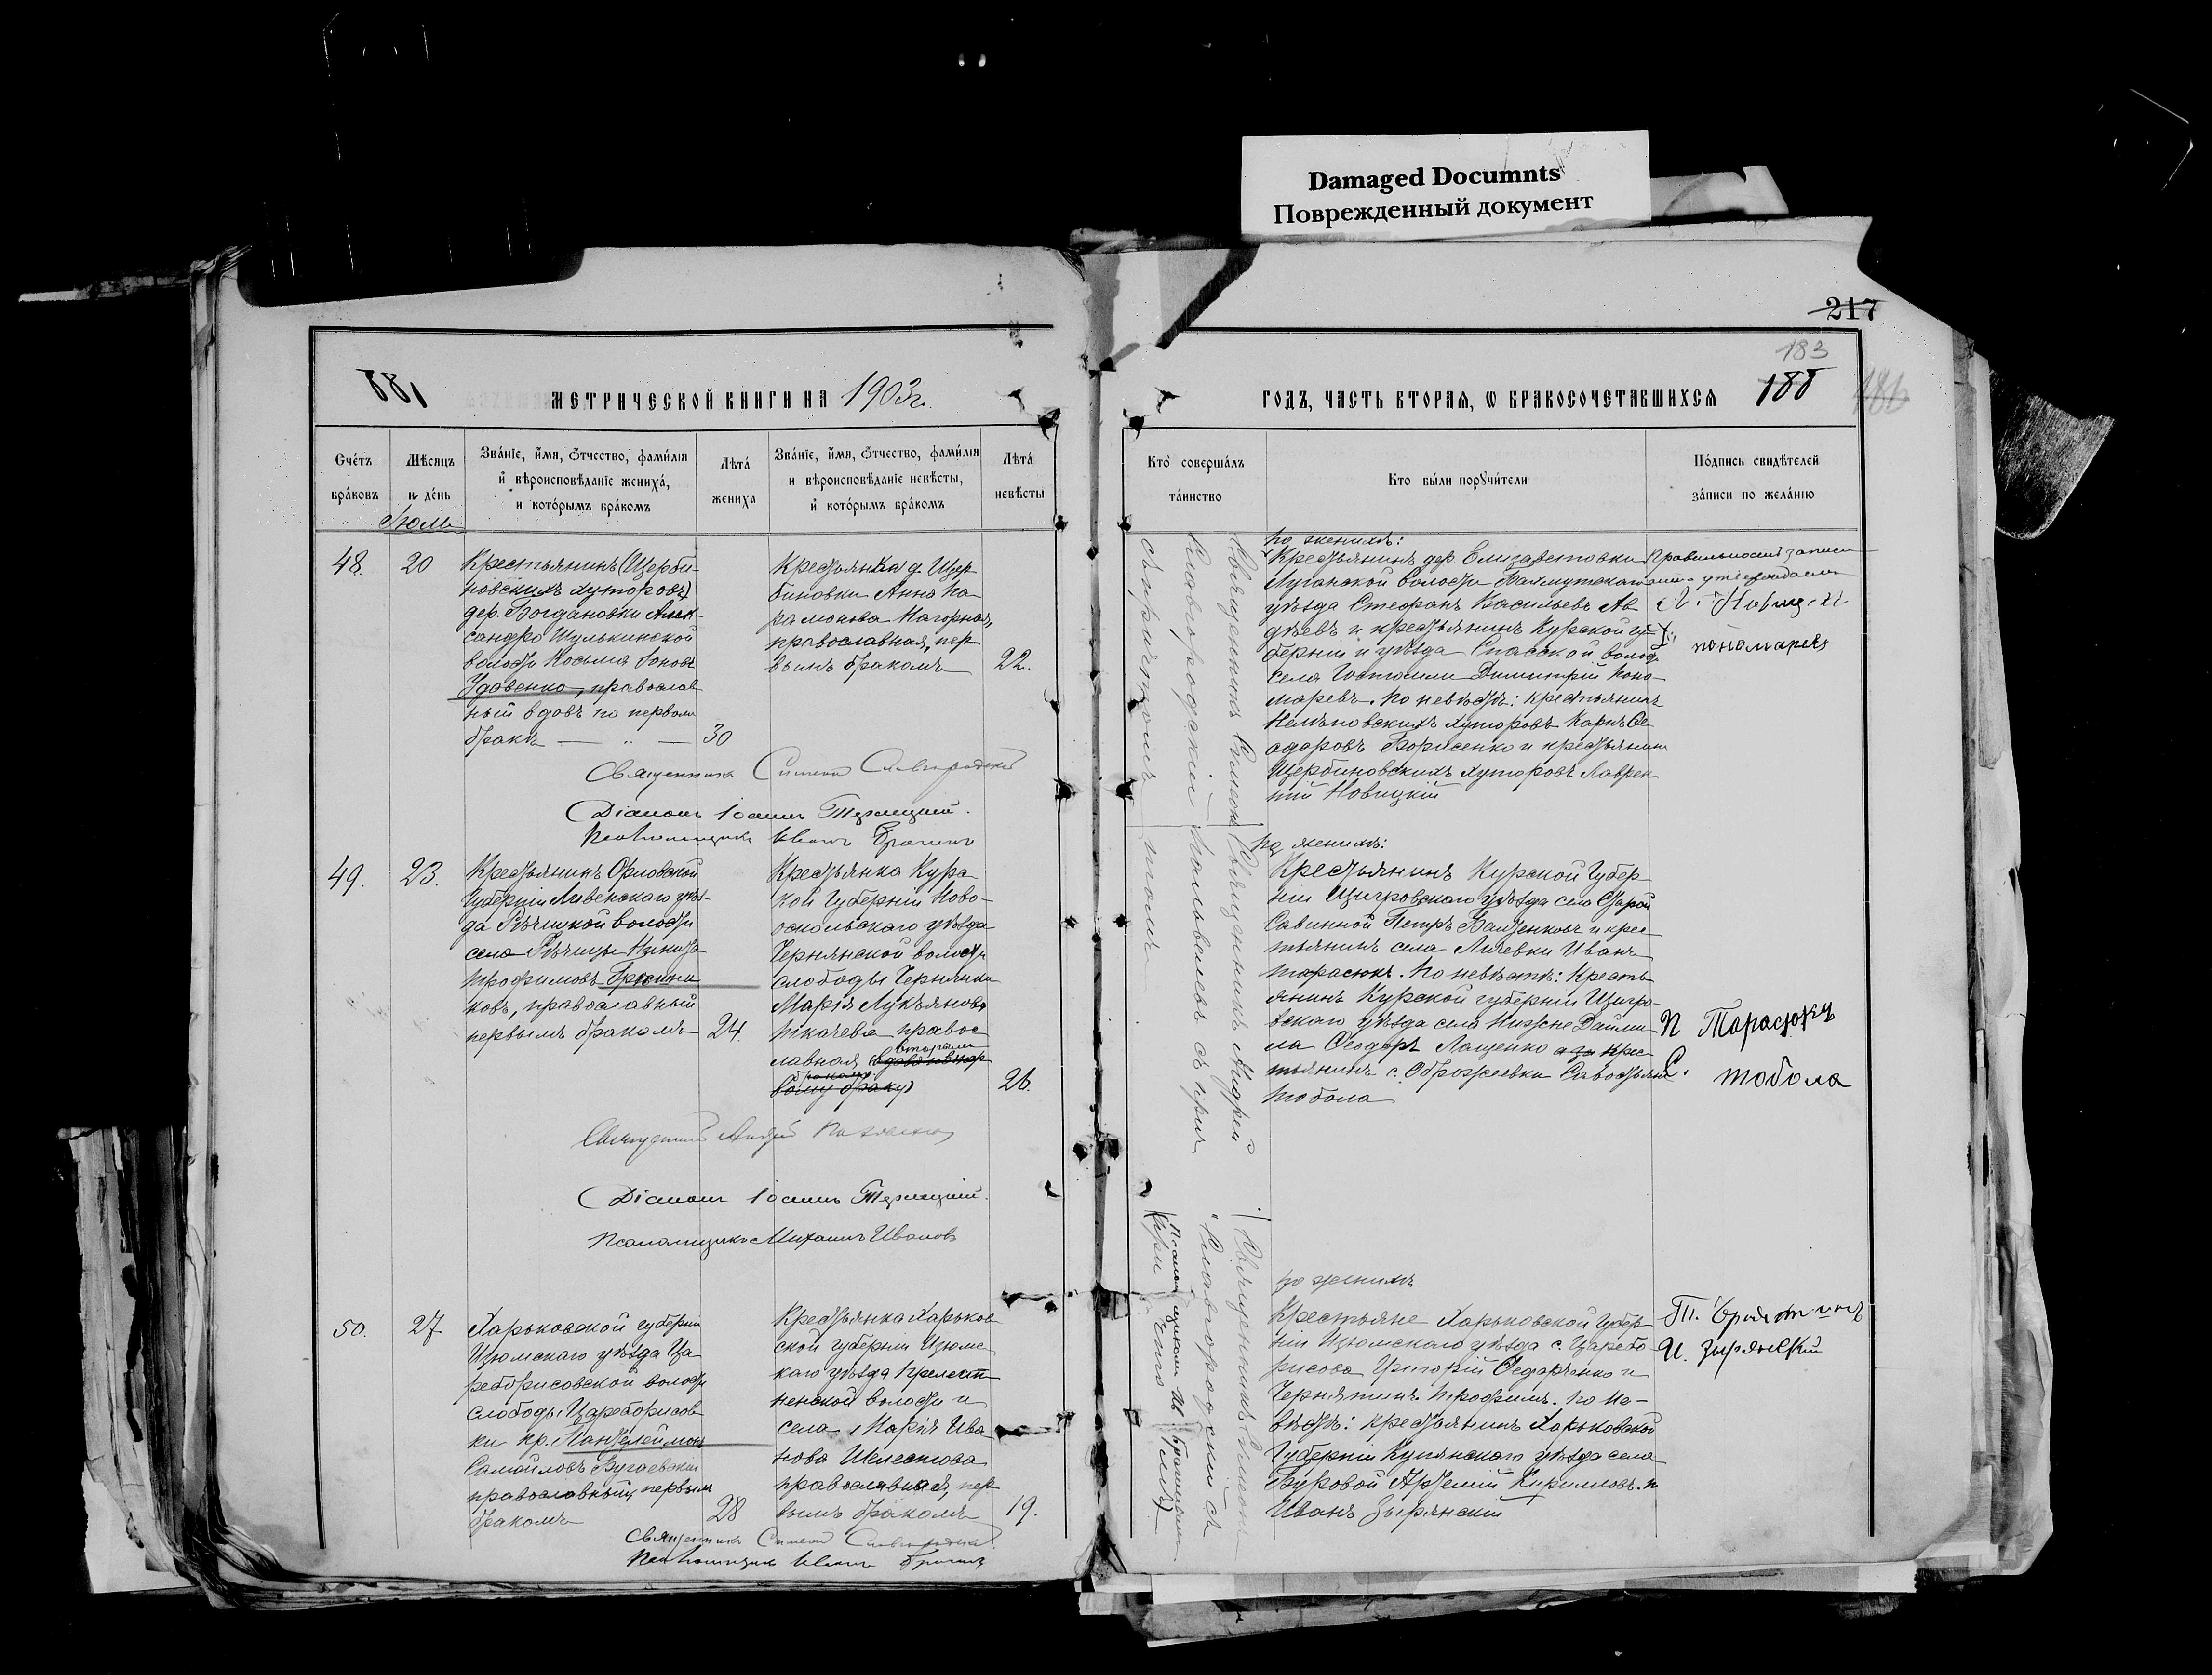 Damaged Documnts
Поврежденный документ
217
183
188
186
881
МЕТРИЧЕСКОЙ КНИГИ НА 1903 г.
Счетъ браковъ
Мѣсяцъ и день
Званіе, имя, отчество, фамилія и вѣроисповѣданіе жениха, и которымъ бракомъ
Лѣта жениха
Званіе, имя, отчество, фамилія и вѣроисповѣданіе невѣсты, и которымъ бракомъ
Лѣта невѣсты
Іюль
48.
20
Крестьянинъ (Щерби-
новскихъ хуторовъ)
дер. Богдановки Алек-
сандро Шулькинской
волости Косьма Іоновъ
Удовенко, православ
ный вдовъ по первомъ
бракѣ — „ —
30
Крестьянка д. Щер
биновки Анна Па
рамонова Нагорная,
православная, пер
вымъ бракомъ
22.
Священникъ Симеон Славгородскій
Діаконъ Іоаннъ Терлецкій.
Псаломщикъ Иванъ
49.
23.
Крестьянинъ Орловской
Губерніи Ливенскаго уѣз-
да Рѣчицкой волости
села Рѣчицы Никита
Трофимовъ
ковъ, православный
первымъ бракомъ
24.
Крестьянка Курс
кой Губерніи Ново-
оскольскаго уѣзда
Чернянской волости
слободы Чернянки
Марія Лукьянова
Ткачева правос
лавная вторымъ
бракомъ
26.
Священникъ Андрей
Діаконъ Іоаннъ Терлецкій.
Псаломщикъ Михаилъ Ивановъ
50.
27
Харьковской губерніи
Изюмскаго уѣзда Ца
реборисовской волости
слободы Цареборисов
ки кр. Пантелеймонъ
Самойловъ Бугаевскій
православный, первымъ
бракомъ
28
Крестьянка Харьков
ской Губерніи Изюмс
каго уѣзда
ненской волости и
села, Марія Ива
нова Шелестова
православная, пер
вымъ бракомъ
19.
Священникъ Симеон Славгородскій
Псаломщикъ Иванъ
ГОДЪ, ЧАСТЬ ВТОРАЯ, О БРАКОСОЧЕТАВШИХСЯ
Кто совершалъ таинство
Кто были поручители
Подпись свидѣтелей записи по желанію
Священникъ Симеонъ
Славгородскій
съ причтомъ
По женихѣ:
Крестьянинъ дер. Елизаветовки
Луганской волости Бахмутскаго
уѣзда Стефанъ Васильевъ Ав
дѣевъ и крестьянинъ Курской гу-
берніи и уѣзда Спасской волос
села Гостомли Димитрій Поно
маревъ. По невѣстѣ: крестьянинъ
Нелѣповскихъ хуторовъ Карпъ Ѳе
одоровъ Борисенко и крестьянинъ
Щербиновскихъ хуторовъ Лаврен
тій Новицкій
Правильность записи
Л. Новицкій
пономарев
Священникъ Андрей
съ прич
томъ
По женихѣ:
Крестьянинъ Курской Губер-
ніи Щигровскаго уѣзда села Старой
Савинной Петръ и крес
тьянинъ села Личевки Иванъ
Тарасюкъ. По невѣстѣ: Кресть
янинъ Курской губерніи Щигро-
вскаго уѣзда села Нижне Дайми-
на Ѳеодоръ Лащенко крес
тьянинъ с. Савостьянъ
Тобола
И Тарасюкъ
С. тобола
Священникъ Симеонъ
Славгородскій съ
псаломщикомъ И.
По женихѣ
Крестьяне Харьковской Губер
ніи Изюмскаго уѣзда с. Царебо
рисова Григорій Ѳедорченко и
Чернятинъ Трофимъ. По не-
вѣстѣ: крестьянинъ Харьковской
Губерніи Купянскаго уѣзда села
Буровой Арсеній Кирилловъ и
Иванъ Зырянскій
Т.
И. Зырянскій